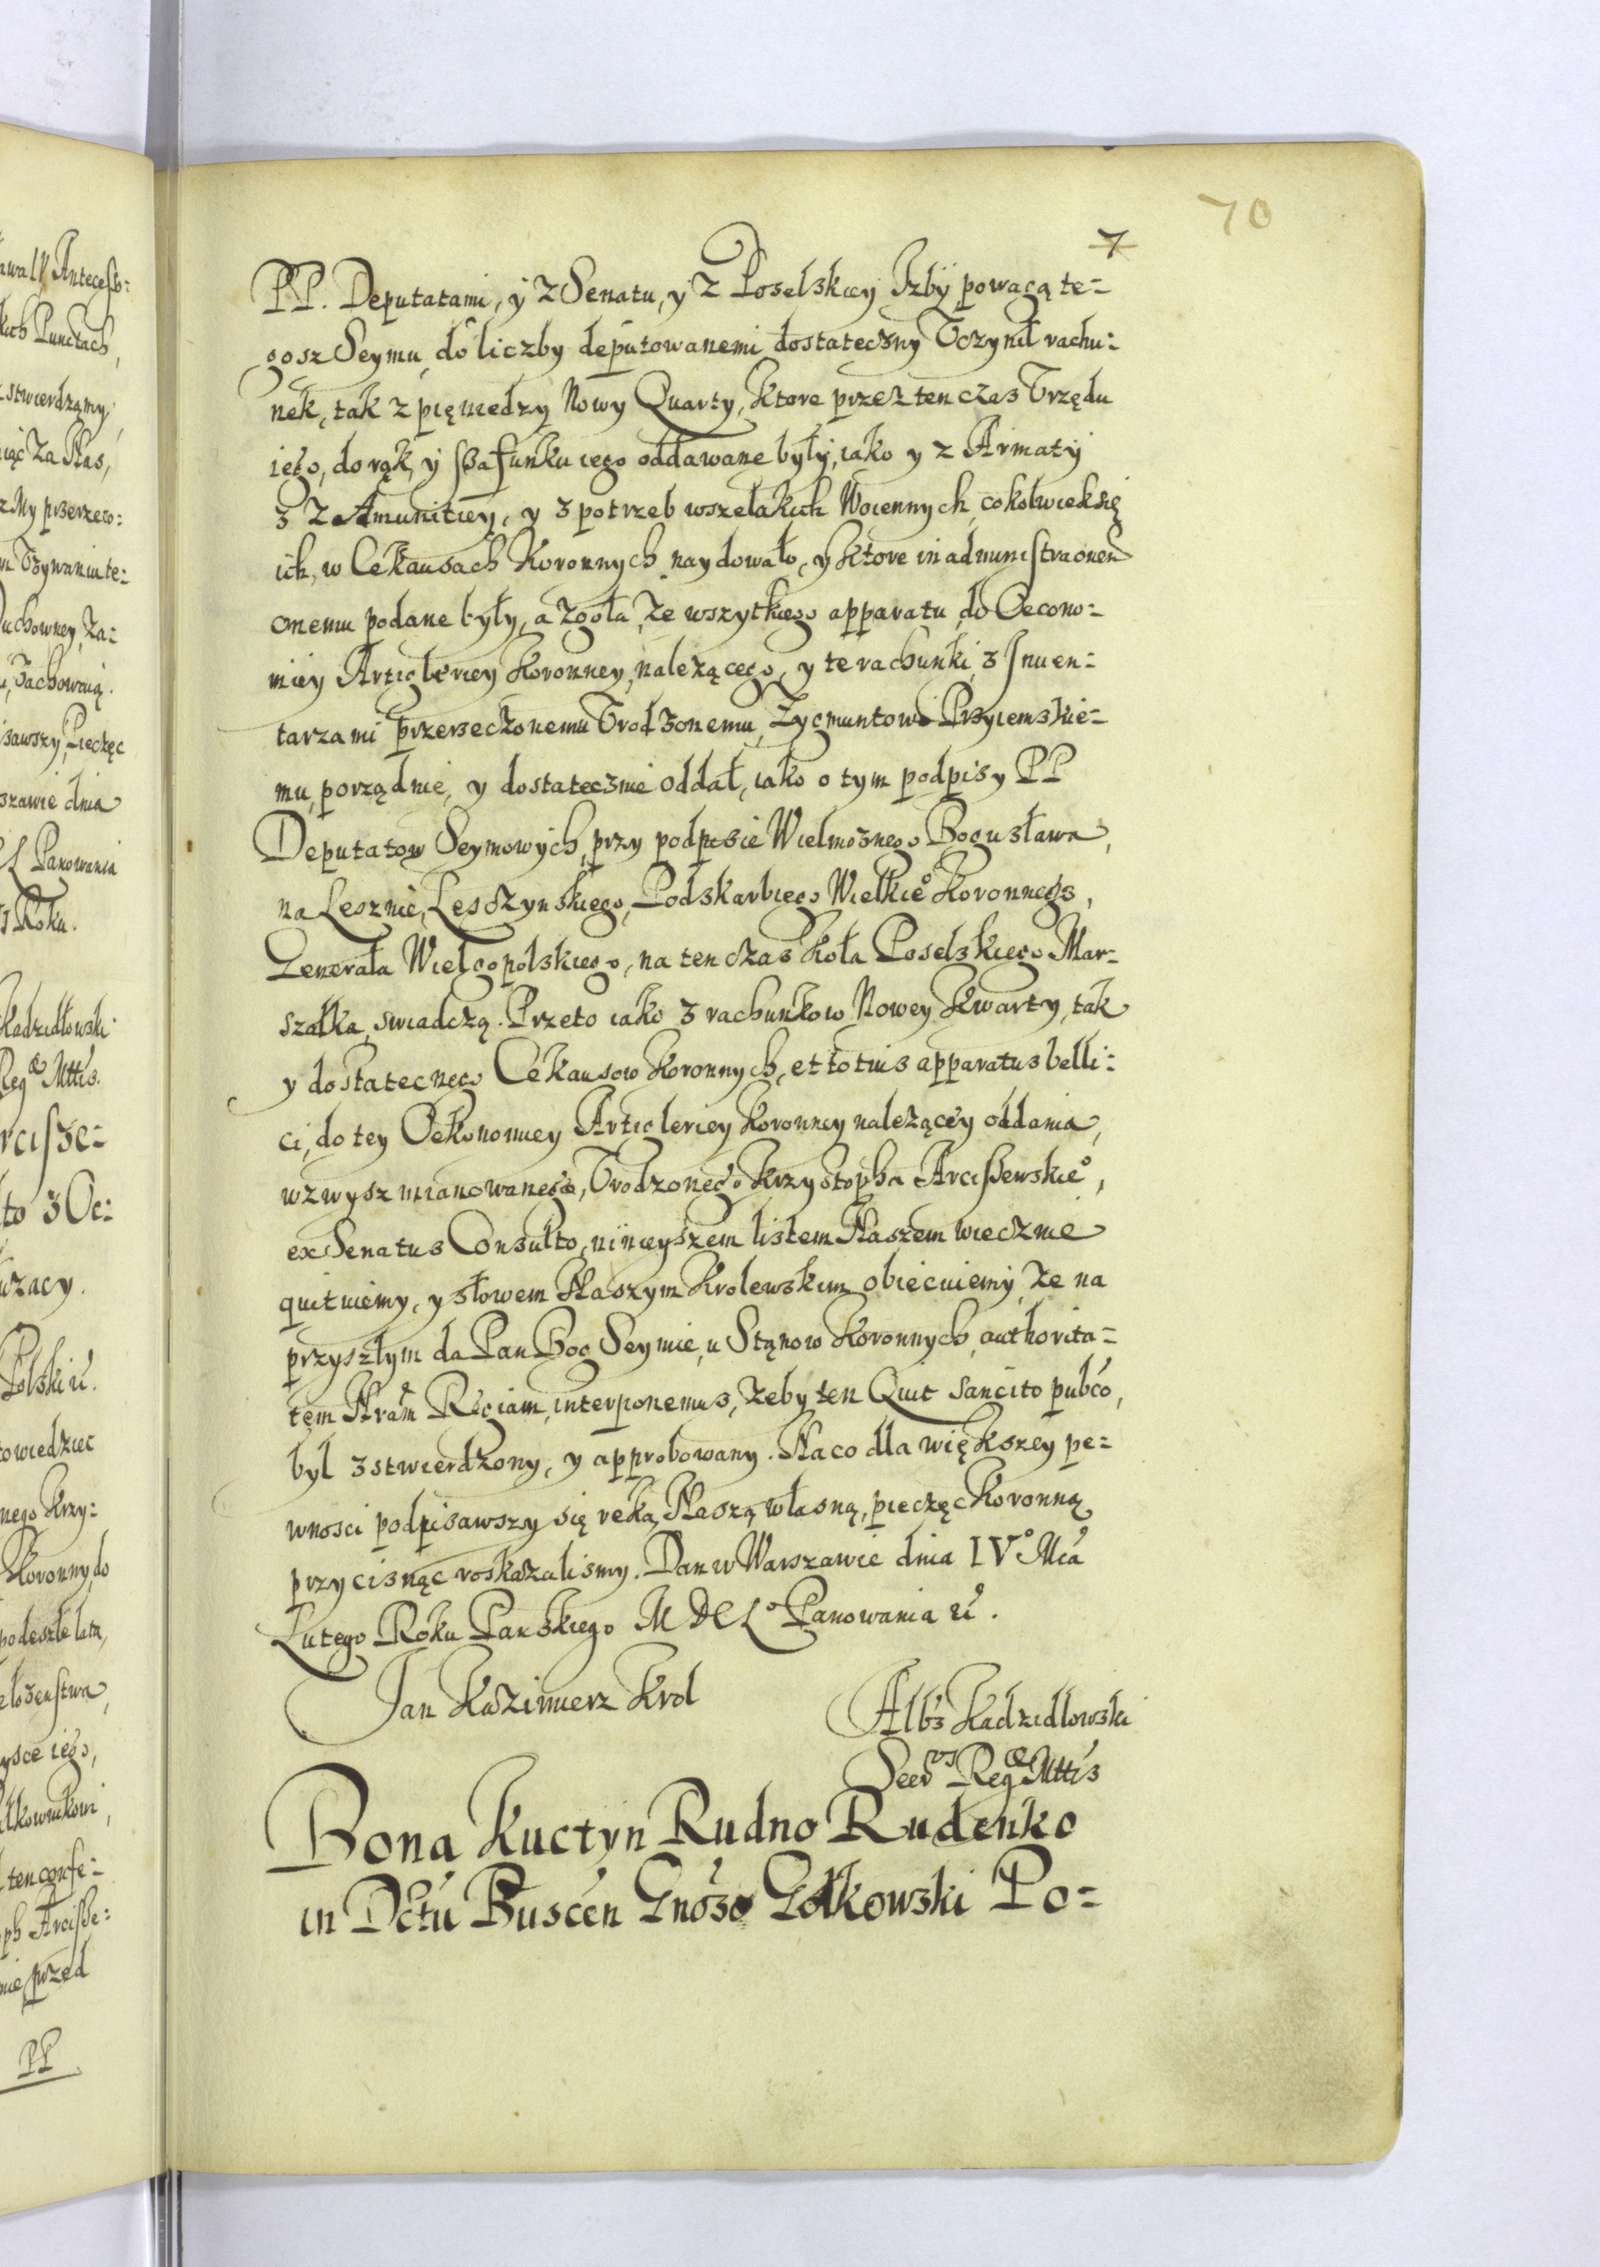 70
7
PP. Deputatami, y z Senatu, y z Poselskiey Izby powagą te=
gosz Seymu, do liczby deputowanemi dostateczny Vczynił rachu=
nek, tak z pięniedzy Nowy Quarty, ktore przez ten czas Vrzędu
iego, do rąk, y szafunku iego oddawane były, iako y z Armaty
z Amunitiey, y z potrzeb wszelakich Woiennych, cokolwiek się
ich, w Cekausach Koronnych naydowało, y ktore in administraonem
onemu podane były, a zgoła, ze wszytkiego apparatu, do Oecono=
miey Artigleriey Koronney, nalezącego, y te rachunki, z Inuen=
tarzami przerzeczonemu Vrodzonemu, Zygmuntowi Przyiemskie=
mu, porządnie, y dostatecznie oddał, iako o tym podpisy PP
Deputatow Seymowych, przy podpisie Wielmoznego Bogusława,
na Lesznie, Lesczynskiego, Podskarbiego Wielkieo Koronnego,
Generała Wielgopolskiego, na ten czas Koła Poselskiego Mar=
szałka, swiadczą. Przeto iako z rachunkow Nowey Kwarty, tak
y dostatecnego Cekausow Koronnych, et totius apparatus belli=
ci, do tey Oekonomiey Artigleriey Koronney nalezącey oddania,
wzwysz mianowanego, Vrodzonego Krzystopha Arciszewskieo,
ex Senatus Consulto, ninieyszem listem Naszem wiecznie
quituiemy, y słowem Naszym Krolewskim obiecuiemy, ze na
przyszłym da Pan Bog Seymie, u Stąnow Koronnych, authorita=
tem Nram Regiam, interponemus, zeby ten Quit sancito pubco,
był zstwierdzony, y approbowany. Na co dla większey pe=
wnosci podpisawszy się reką Naszą własną, pieczęc Koronną
przycisnąc roskazalismy. Dan w Warszawie dnia IVo Mca
Lutego Roku Panskiego MDCLo Panowania ut.
Jan Kazimierz Krol
Albs Kadzidłowski
Secrus Regae Mttis
Bona Kuctyn Rudno Rudenko
in Dctu Buscen Gnoso Gołkowski Po=